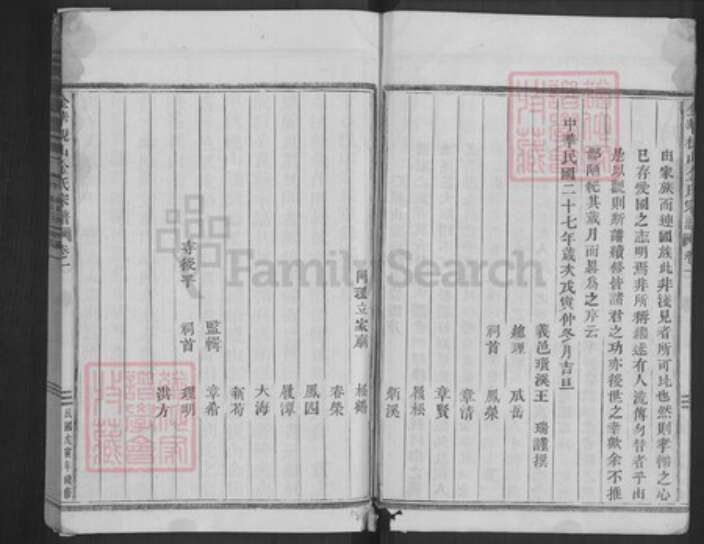 由家族而速國族此非淺見者所可比也然則孝悌之心
已存愛國之志明焉非所稱繼述有人流傳勿替者乎由
是以觀則斯譜續修皆諸君之功亦後世之幸歟余不推
鄙陋乾其歲月而畧為之序云
中華民國二十七年歲次戊寅仲冬月吉旦
義邑瓚溪王 瑞謹撰
總理 成岳
祠首 鳳榮
章清
章賢
履松
炳溪
同理立家廟 松錫
春榮
鳳園
履潭
大海
新荷
監輯 章希
祠首 理明
洪方
民國戊寅年續修
FamilySearch